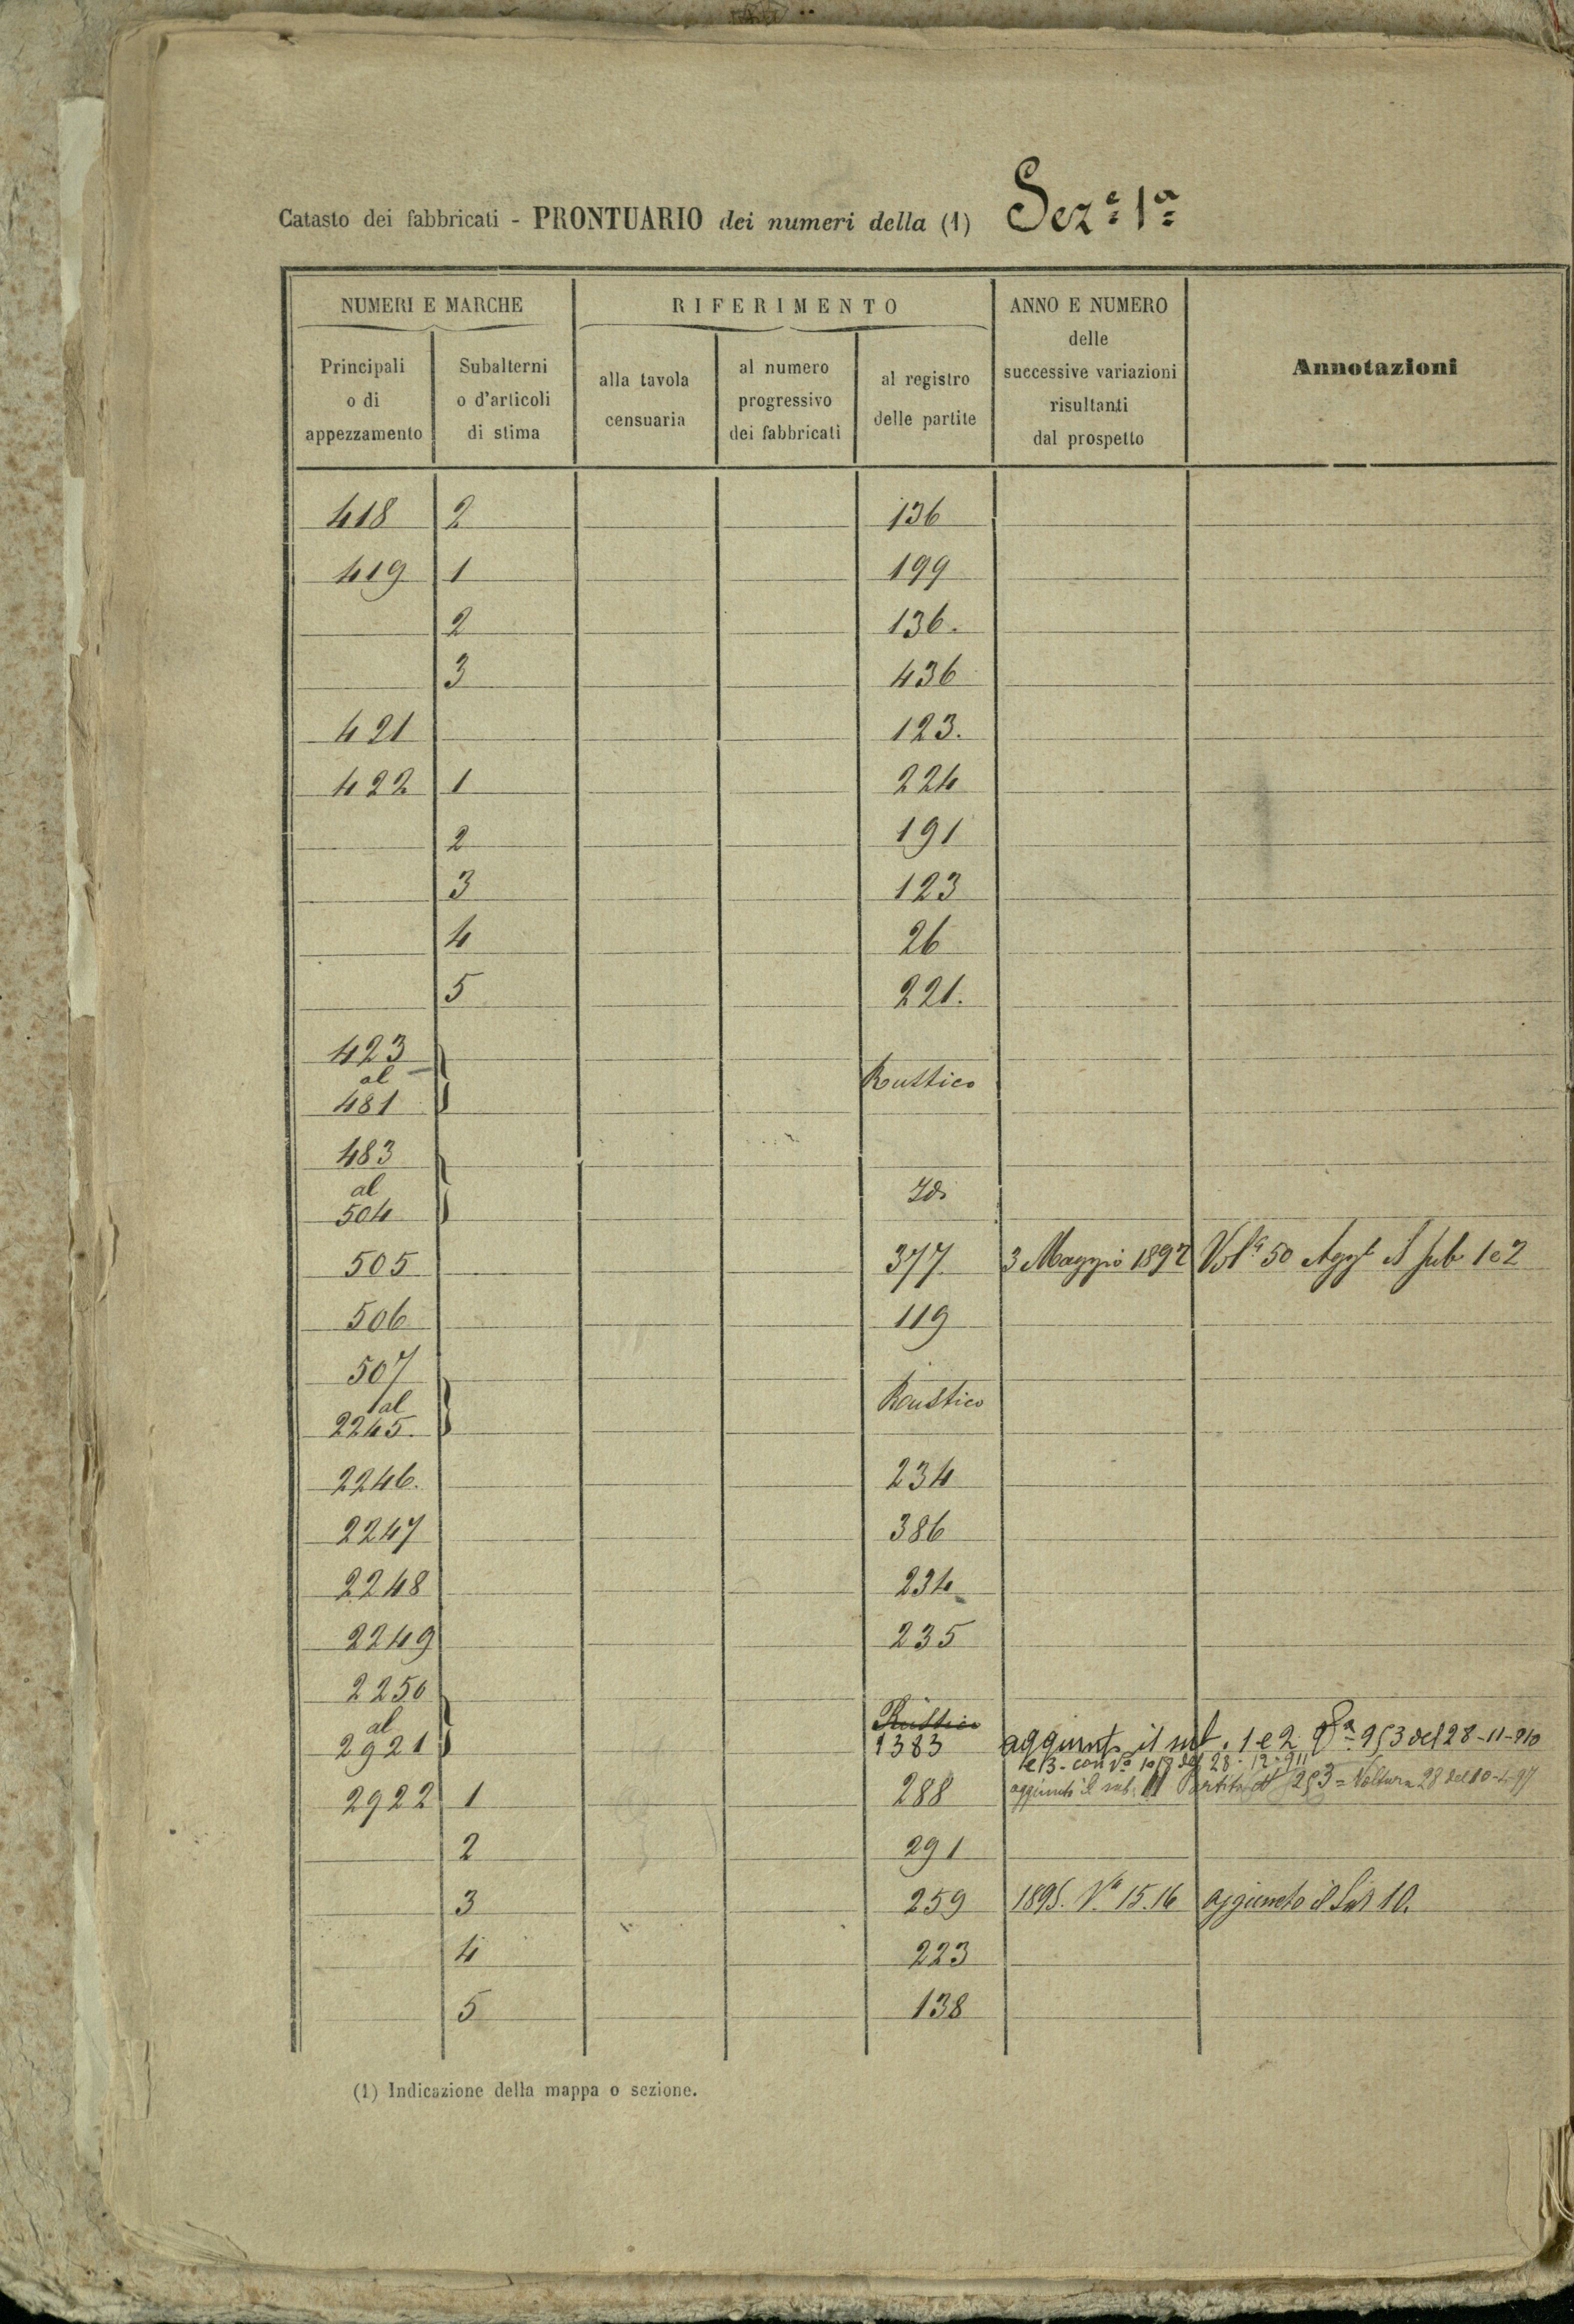 Catasto dei fabbricati - PRONTUARIO dei numeri della (1) Sez.e 1a
NUMERI E MARCHE
RIFERIMENTO
ANNO E NUMERO
delle
successive variazioni
risultanti
dal prospetto
Annotazioni
Principali
o di
appezzamento
Subalterni
o d'articoli
di stima
alla tavola
censuaria
al numero
progressivo
dei fabbricati
al registro
delle partite
418 2 136
419 1 199
2 136.
3 436
421 123.
422 1 224
2 191
3 123
4 26
5 221.
423
al Rustico
481
483
al Id.
504
505 377 3 Maggio 1892 50 sub 1 e 2
506 119
507
al Rustico
2245.
2246. 234
2247 386
2248 234
2249 235
2250
al Rustico
2921 1383 aggiunto il sub. 1 e 2 953 del 28-11-910
e 3 - con 28-12-911
2922 1 288 aggiunto il sub. 11 Partita 253 = Voltura 28 del
2 291
3 259 1895. N.o 15.16 aggiunto il Sub 10.
4 223
5 138
(1) Indicazione della mappa o sezione.